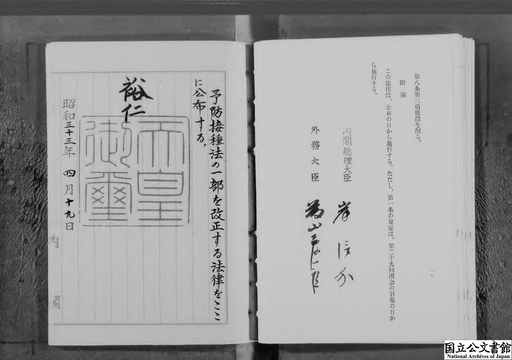 第八条第三項後段を削る。
附則
この法律は、公布の日から施行する。ただし、第一条の規定は、第二十九回国会の召集の日か
ら施行する。
内閣総理大臣 岸信介
外務大臣
予防接種法の一部を改正する法律をここ
に公布する。
裕仁
天皇御璽
昭和三十三年四月十九日
国立公文書館
National Archives of Japan